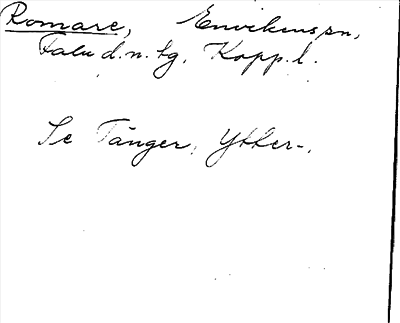 Romare, Envikens sn,
Falu d.n. tg, Kopp. l.
Se Tänger, Ytter-.